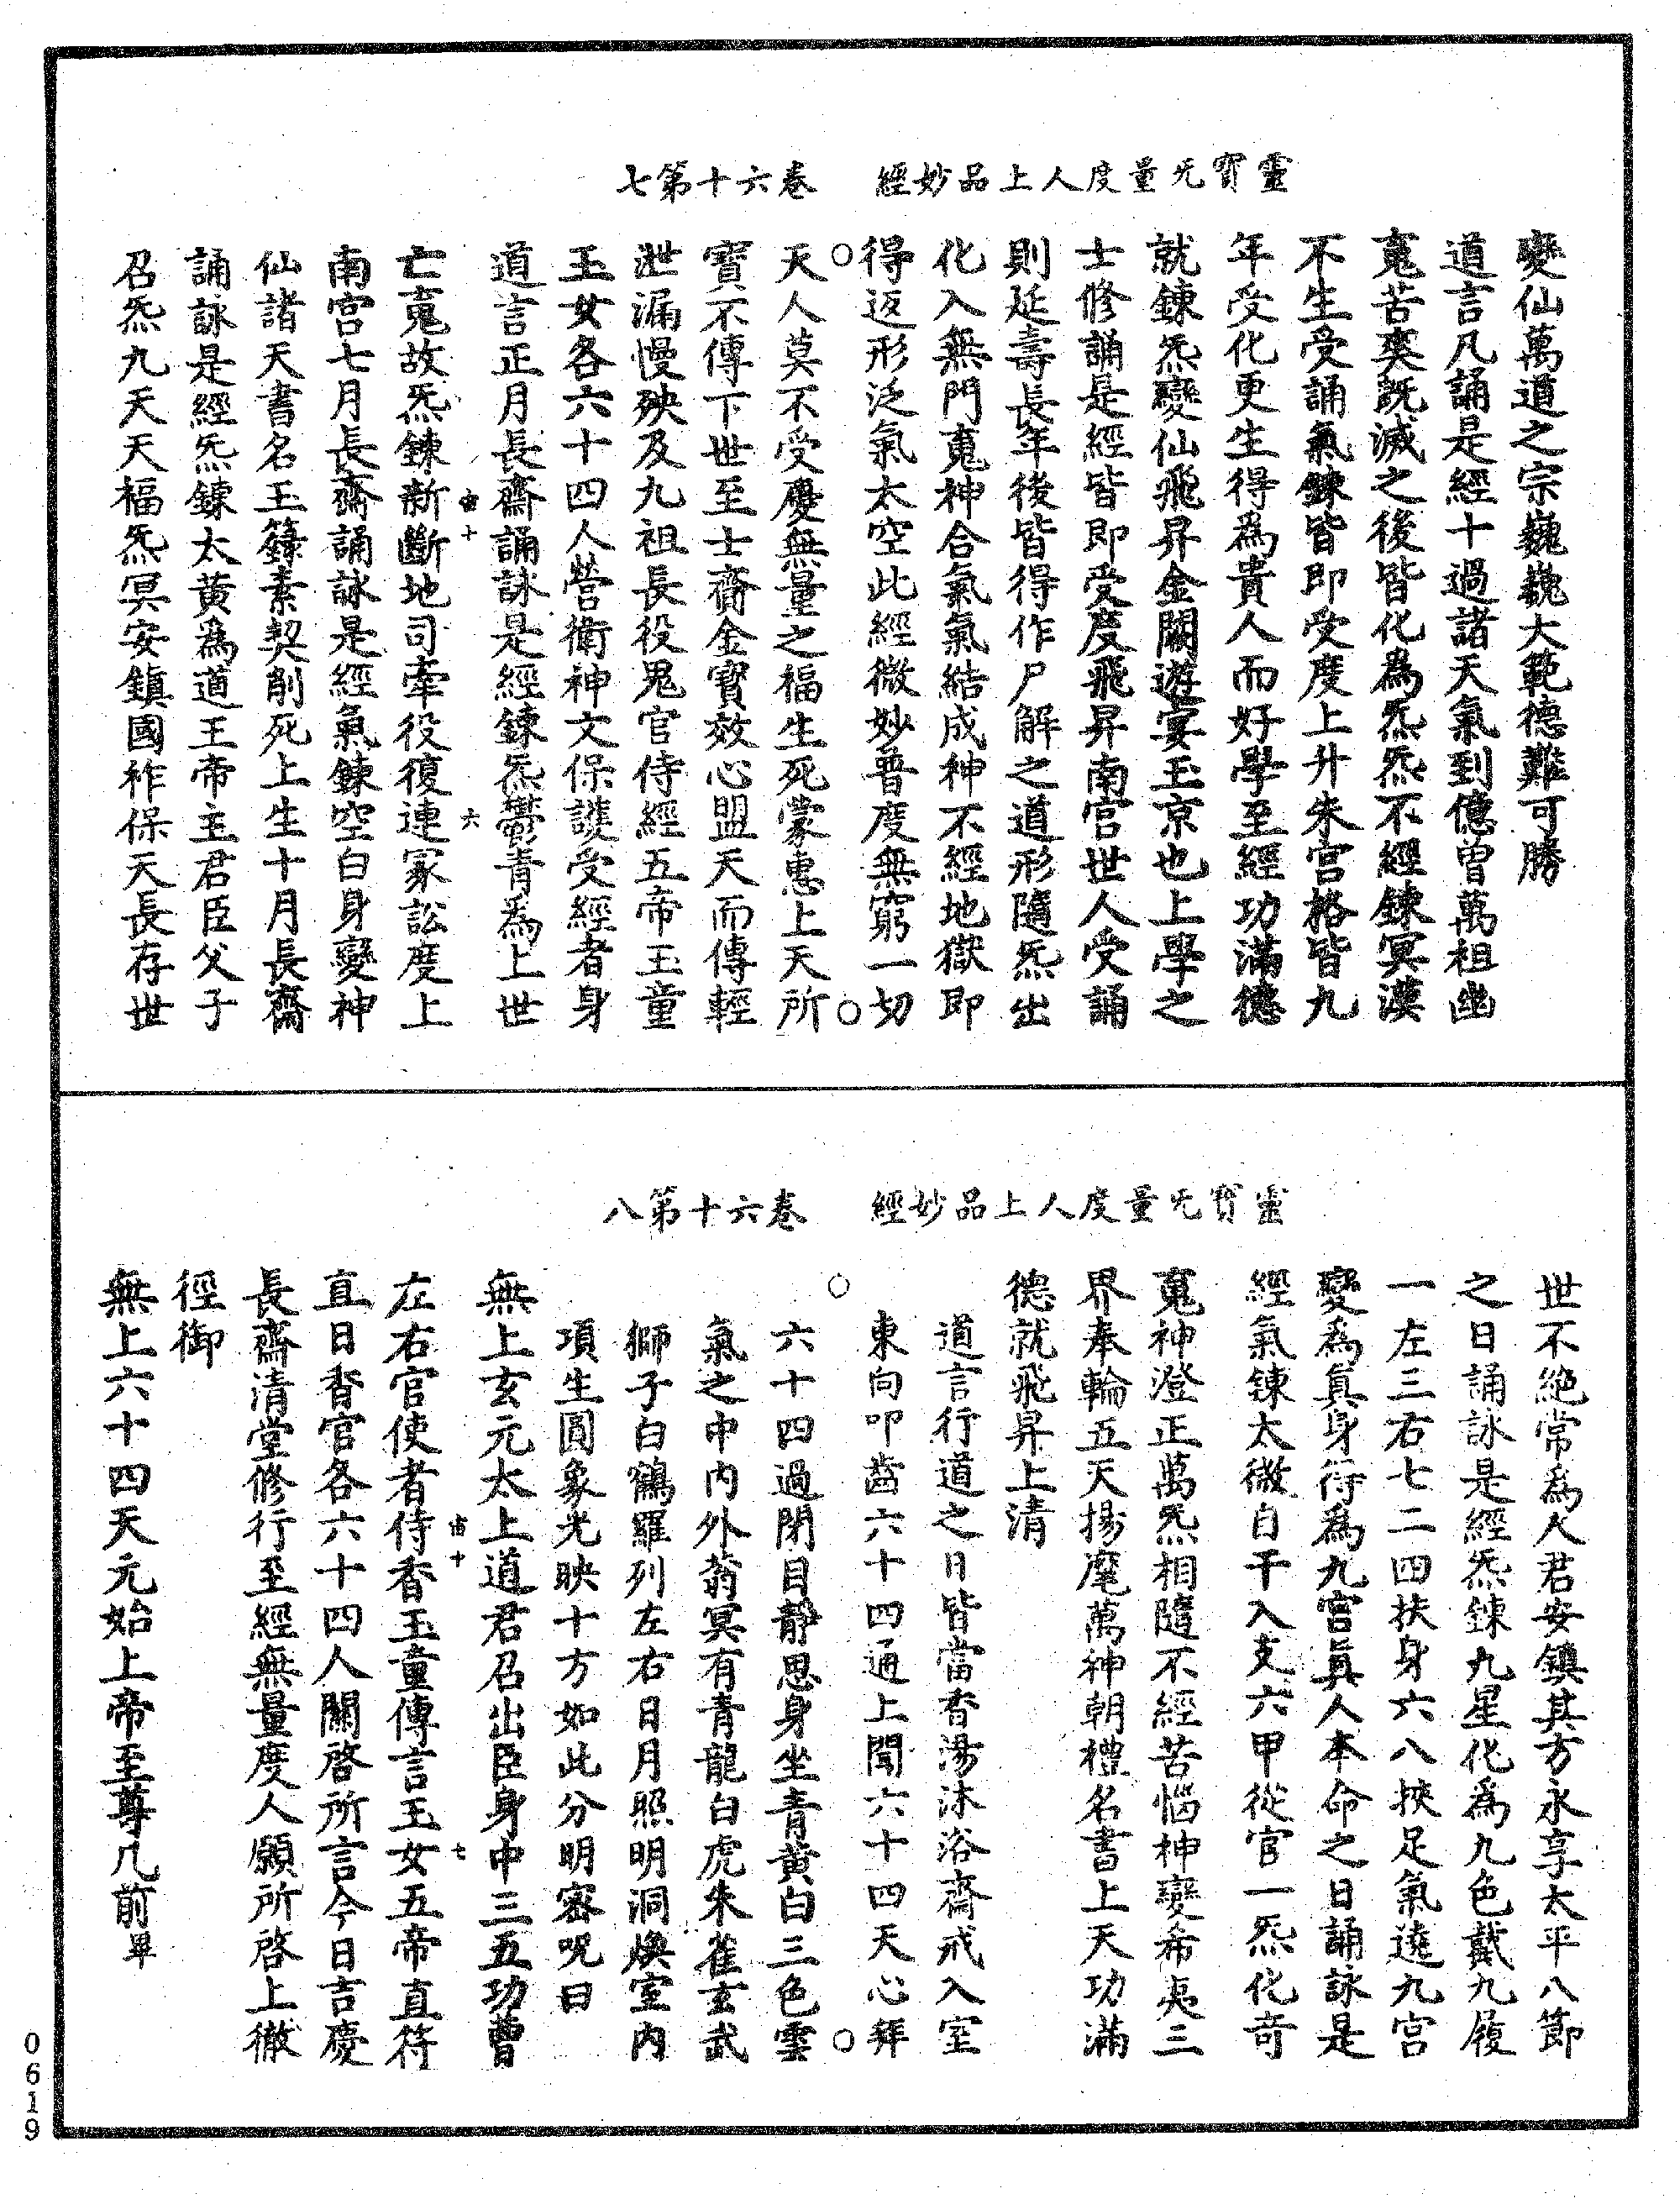 靈寶无量度人上品妙經　卷六十第七
變仙萬道之宗巍巍大範德難可勝
道言凡誦是經十過諸天氣到億曾萬祖幽
䰟苦爽旣滅之後皆化為炁炁不經鍊冥漠
不生受誦氣鍊皆即受度上升朱宮格皆九
年受化更生得為貴人而好學至經功滿德
就鍊炁變仙飛昇金闕遊宴玉京也上學之
士修誦是經皆即受度飛昇南宮世人受誦
則延壽長年後皆得作尸解之道形隨炁出
化入無門䰟神合氣氣結成神不經地獄即
得返形泛氣太空此經微妙普度無窮一切
天人莫不受慶無量之福生死蒙惠上天所
寶不傳下世至士齎金寶效心盟天而傳輕
泄漏慢殃及九祖長役鬼官侍經五帝玉童
玉女各六十四人營衛神文保護受經者身
道言正月長齋誦詠是經鍊炁鬱青為上世
宙十　六
亡䰟故炁鍊新斷地司牽役復連冢訟度上
南宮七月長齋誦詠是經氣鍊空白身變神
仙諸天書名玉籙素契削死上生十月長齋
誦詠是經炁鍊太黃為道王帝主君臣父子
召炁九天天福炁冥安鎮國祚保天長存世
靈寶无量度人上品妙經　卷六十第八
世不絕常為人君安鎮其方永享太平八節
之日誦詠是經炁鍊九星化為九色戴九履
一左三右七二四扶身六八挾足氣遶九宮
變為真身待為九宮真人本命之日誦詠是
經氣鍊太微白干入支六甲從官一炁化奇
䰟神澄正萬炁相隨不經苦惱神變希夷三
界奉輪五天揚麾萬神朝禮名書上天功滿
德就飛昇上清
道言行道之日皆當香湯沐浴齋戒入室
東向叩齒六十四通上聞六十四天心拜
六十四過閉目靜思身坐青黃白三色雲
氣之中內外蓊冥有青龍白虎朱雀玄武
獅子白鶴羅列左右日月照明洞煥室內
項生圓象光映十方如此分明密呪曰
無上玄元太上道君召出臣身中三五功曹
宙十　七
左右官使者侍香玉童傳言玉女五帝直符
直日香官各六十四人關啓所言今日吉慶
長齋清堂修行至經無量度人願所啓上徹
徑御
無上六十四天元始上帝至尊几前畢
0619